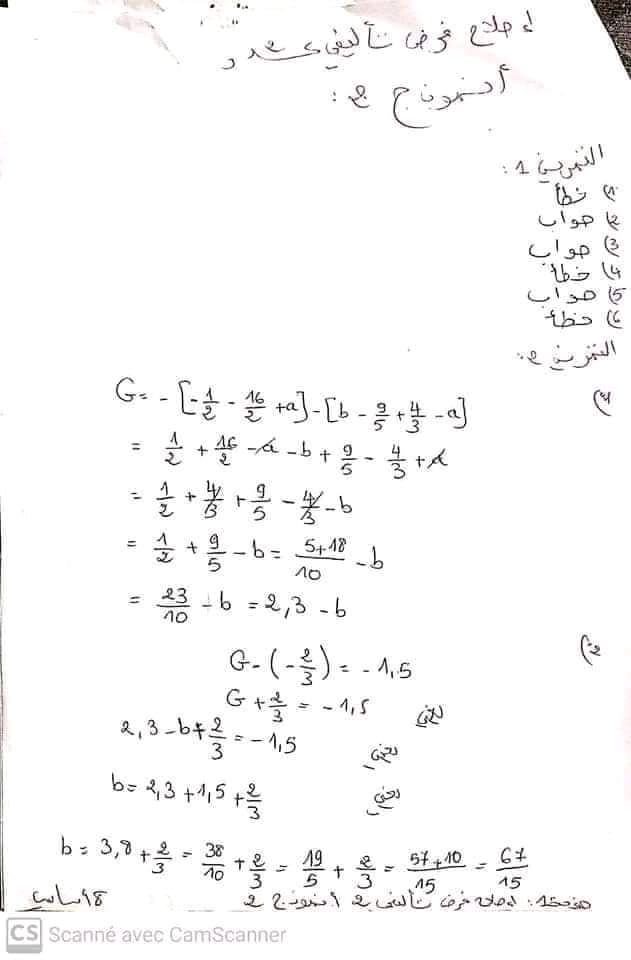 إصلاح فرض تأليفي عـ2ـدد
أنموذج 2 :
التمرين 1 :
1) خطأ
2) صواب
3) صواب
4) خطأ
5) صواب
6) خطأ
التمرين 2 :
1)
G = - [-1/2 - 16/2 + a] - [b - 9/5 + 4/3 - a]
= 1/2 + 16/2 - a - b + 9/5 - 4/3 + a
= 1/2 + 4/3 + 9/5 - 4/3 - b
= 1/2 + 9/5 - b = 5+18/10 - b
= 23/10 - b = 2,3 - b
2)
G - (-2/3) = - 1,5
G + 2/3 = - 1,5 يعني
2,3 - b + 2/3 = - 1,5 يعني
b = 2,3 + 1,5 + 2/3 يعني
b = 3,8 + 2/3 = 38/10 + 2/3 = 19/5 + 2/3 = 57+10/15 = 67/15
صفحة 1: إصلاح فرض تأليفي 2 أنموذج 2
CS Scanné avec CamScanner